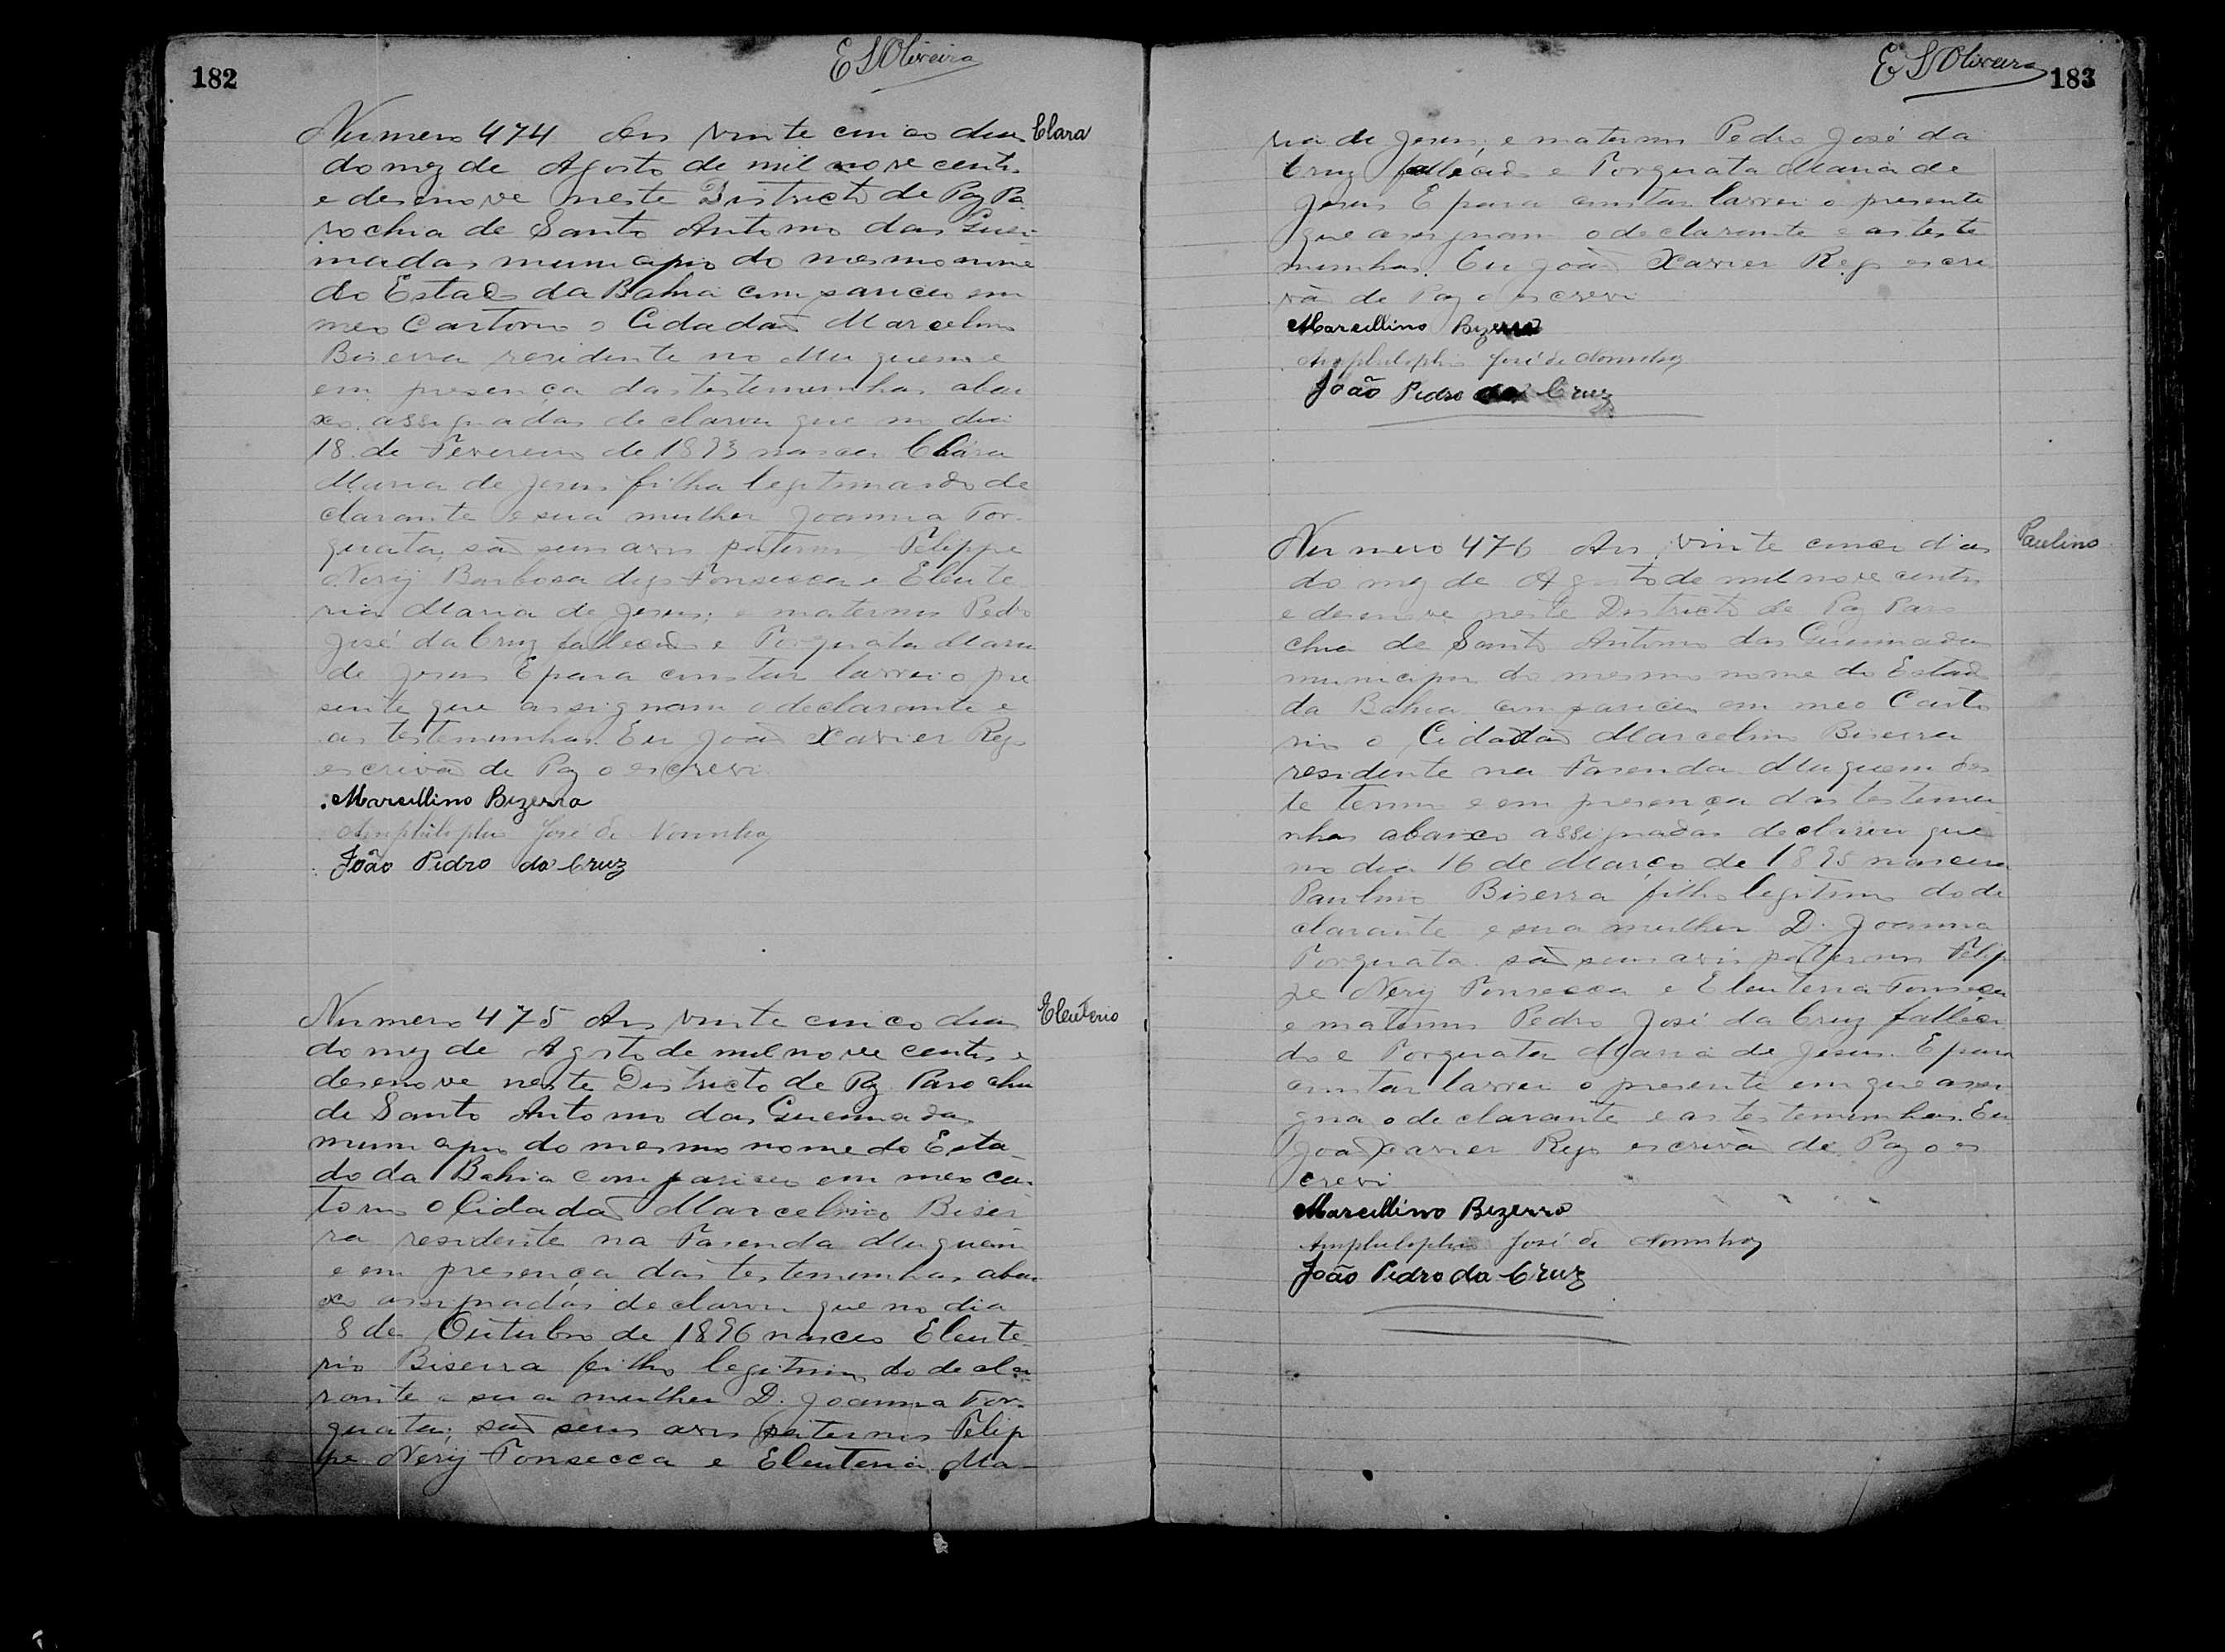 182
E S Oliveira
Numero 474 Aos vinte cinco dias
Clara
do mez de Agosto de mil nove centos
e desenove neste Districto de Paz Pa
rochia de Santo Antonio das Quei-
madas municipio do mesmo nome
do Estado da Bahia compareceu em
meo Cartorio o Cidadão Marcelino
Biserra residente no Muquem e
em presença das testemunhas abai
xo assignadas declarou que no dia
18 de Fevereiro de 1893 nasceu Clara
Maria de Jesus filha legitima do de
clarante e sua mulher Joanna Tor-
quata, são seus avos paternos Felippe
Nery Barbosa Fonsecca e Eleute
ria Maria de Jesus; e maternos Pedro
José da Cruz fallecido e Torquata Maria
de Jesus E para constar lavrei o pre
sente que assignam o declarante e
as testemunhas. Eu João Xavier Reys
escrivão de Paz o escrevi.
Marcellino Bizerra
Amphilophio José de Noronha
João Pedro da Cruz
Numero 475 Aos vinte cinco dias
Eleuterio
do mez de Agosto de mil nove centos e
desenove neste Districto de Paz Parochia
de Santo Antonio das Queimadas
municipio do mesmo nome do Esta-
do da Bahia compareceu em meo Car
torio o Cidadão Marcelino Biser
ra residente na Fasenda Muquem
e em presença das testemunhas abai
xo assignadas declarou que no dia
8 de Outubro de 1896 nasceo Eleute
rio Biserra filho legitimo do decla
rante e sua mulher D. Joanna Tor-
quata; são seus avos paternos Felip
pe Nery Fonsecca e Eleuteria Ma-
E S Oliveira
183
ria de Jesus; e maternos Pedro José da
Cruz fallecido e Torquata Maria de
Jesus E para constar lavrei o presente
que assignam o declarante e as teste
munhas. Eu João Xavier Reys escri
vão de Paz o escrevi
Marcellino Bizerra
Amphilophio José de Noronha
João Pedro da Cruz
Numero 476 Aos vinte cinco dias
Paulino
do mez de Agosto de mil nove centos
e desenove neste Districto de Paz Paro
chia de Santo Antonio das Queimadas
municipio do mesmo nome do Estado
da Bahia compareceu em meo Carto
rio o Cidadão Marcelino Biserra
residente na Fasenda Muquem des
te termo e em presença das testemu
nhas abaixo assignadas declarou que
no dia 16 de Março de 1895 nasceu
Paulino Biserra filho legitimo do de
clarante e sua mulher D. Joanna
Torquata são seus avós paternos Felip
pe Nery Fonsecca e Eleuteria Fonseca
e maternos Pedro José da Cruz falleci
do e Torquata Maria de Jesus. E para
constar lavrei o presente em que assi
gna o declarante e as testemunhas. Eu
João Xavier Reys escrivão de Paz o es
crevi
Marcellino Bizerra
Amphilophio José de Noronha
João Pedro da Cruz